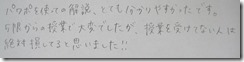 パワポを使っての解説、とても分かりやすかったです。
5限からの授業で大変でしたが、授業を受けてない人は
絶対損してると思いました!!